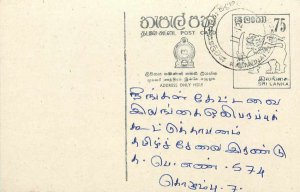 තැපැල් පත
தபாலட்டை POST CARD
ශ්‍රී ලංකා
.75
ADDRESS ONLY HERE
இலங்கை
SRI LANKA
நீங்கள் கேட்டவை
இலங்கை ஒலிபரப்புக்
கூட்டுத்தாபனம்
தமிழ்ச் சேவை இரண்டு
த. பெ. எண். 574
கொழும்பு - 7.